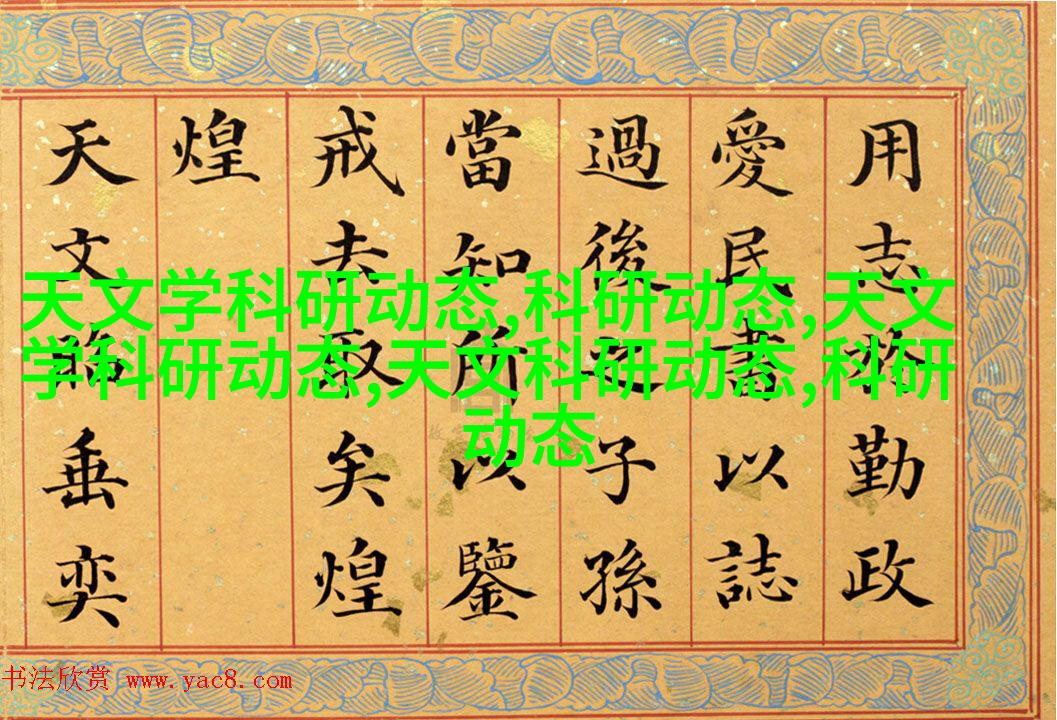 用志勤政
愛民書以誌
過後子孫
當知所以鑒
戒去取矣煌
煌
天文垂奕
天文学科研动态,科研动态,天文
学科研动态,天文科研动态,科研
动态
书法欣赏 www.yac8.com